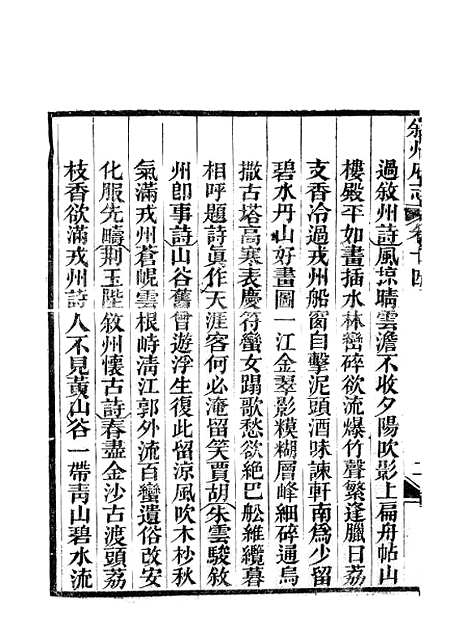 過敘州詩風掠晴雲澹不收夕陽吹影上扁舟帖山
樓殿平如畫插水林巒碎欲流爆竹聲繁逢臘日荔
支香冷過戎州船窗自擊泥頭酒味諫軒南爲少留
碧水丹山好畫圖一江金翠影糢糊層峰細碎通烏
撒古塔高寒表慶符蠻女蹋歌愁欲絕巴船維纜暮
相呼題詩眞作天涯客何必淹留笑賈胡朱雲駿敘
州卽事詩山谷舊曾遊浮生復此留涼風吹木杪秋
氣滿戎州蒼岲雲根峙淸江郭外流百蠻遺俗改安
化服先疇荆玉陛敘州懷古詩春盡金沙古渡頭荔
枝香欲滿戎州詩人不見黃山谷一帶靑山碧水流
敘州府志
卷十四
二